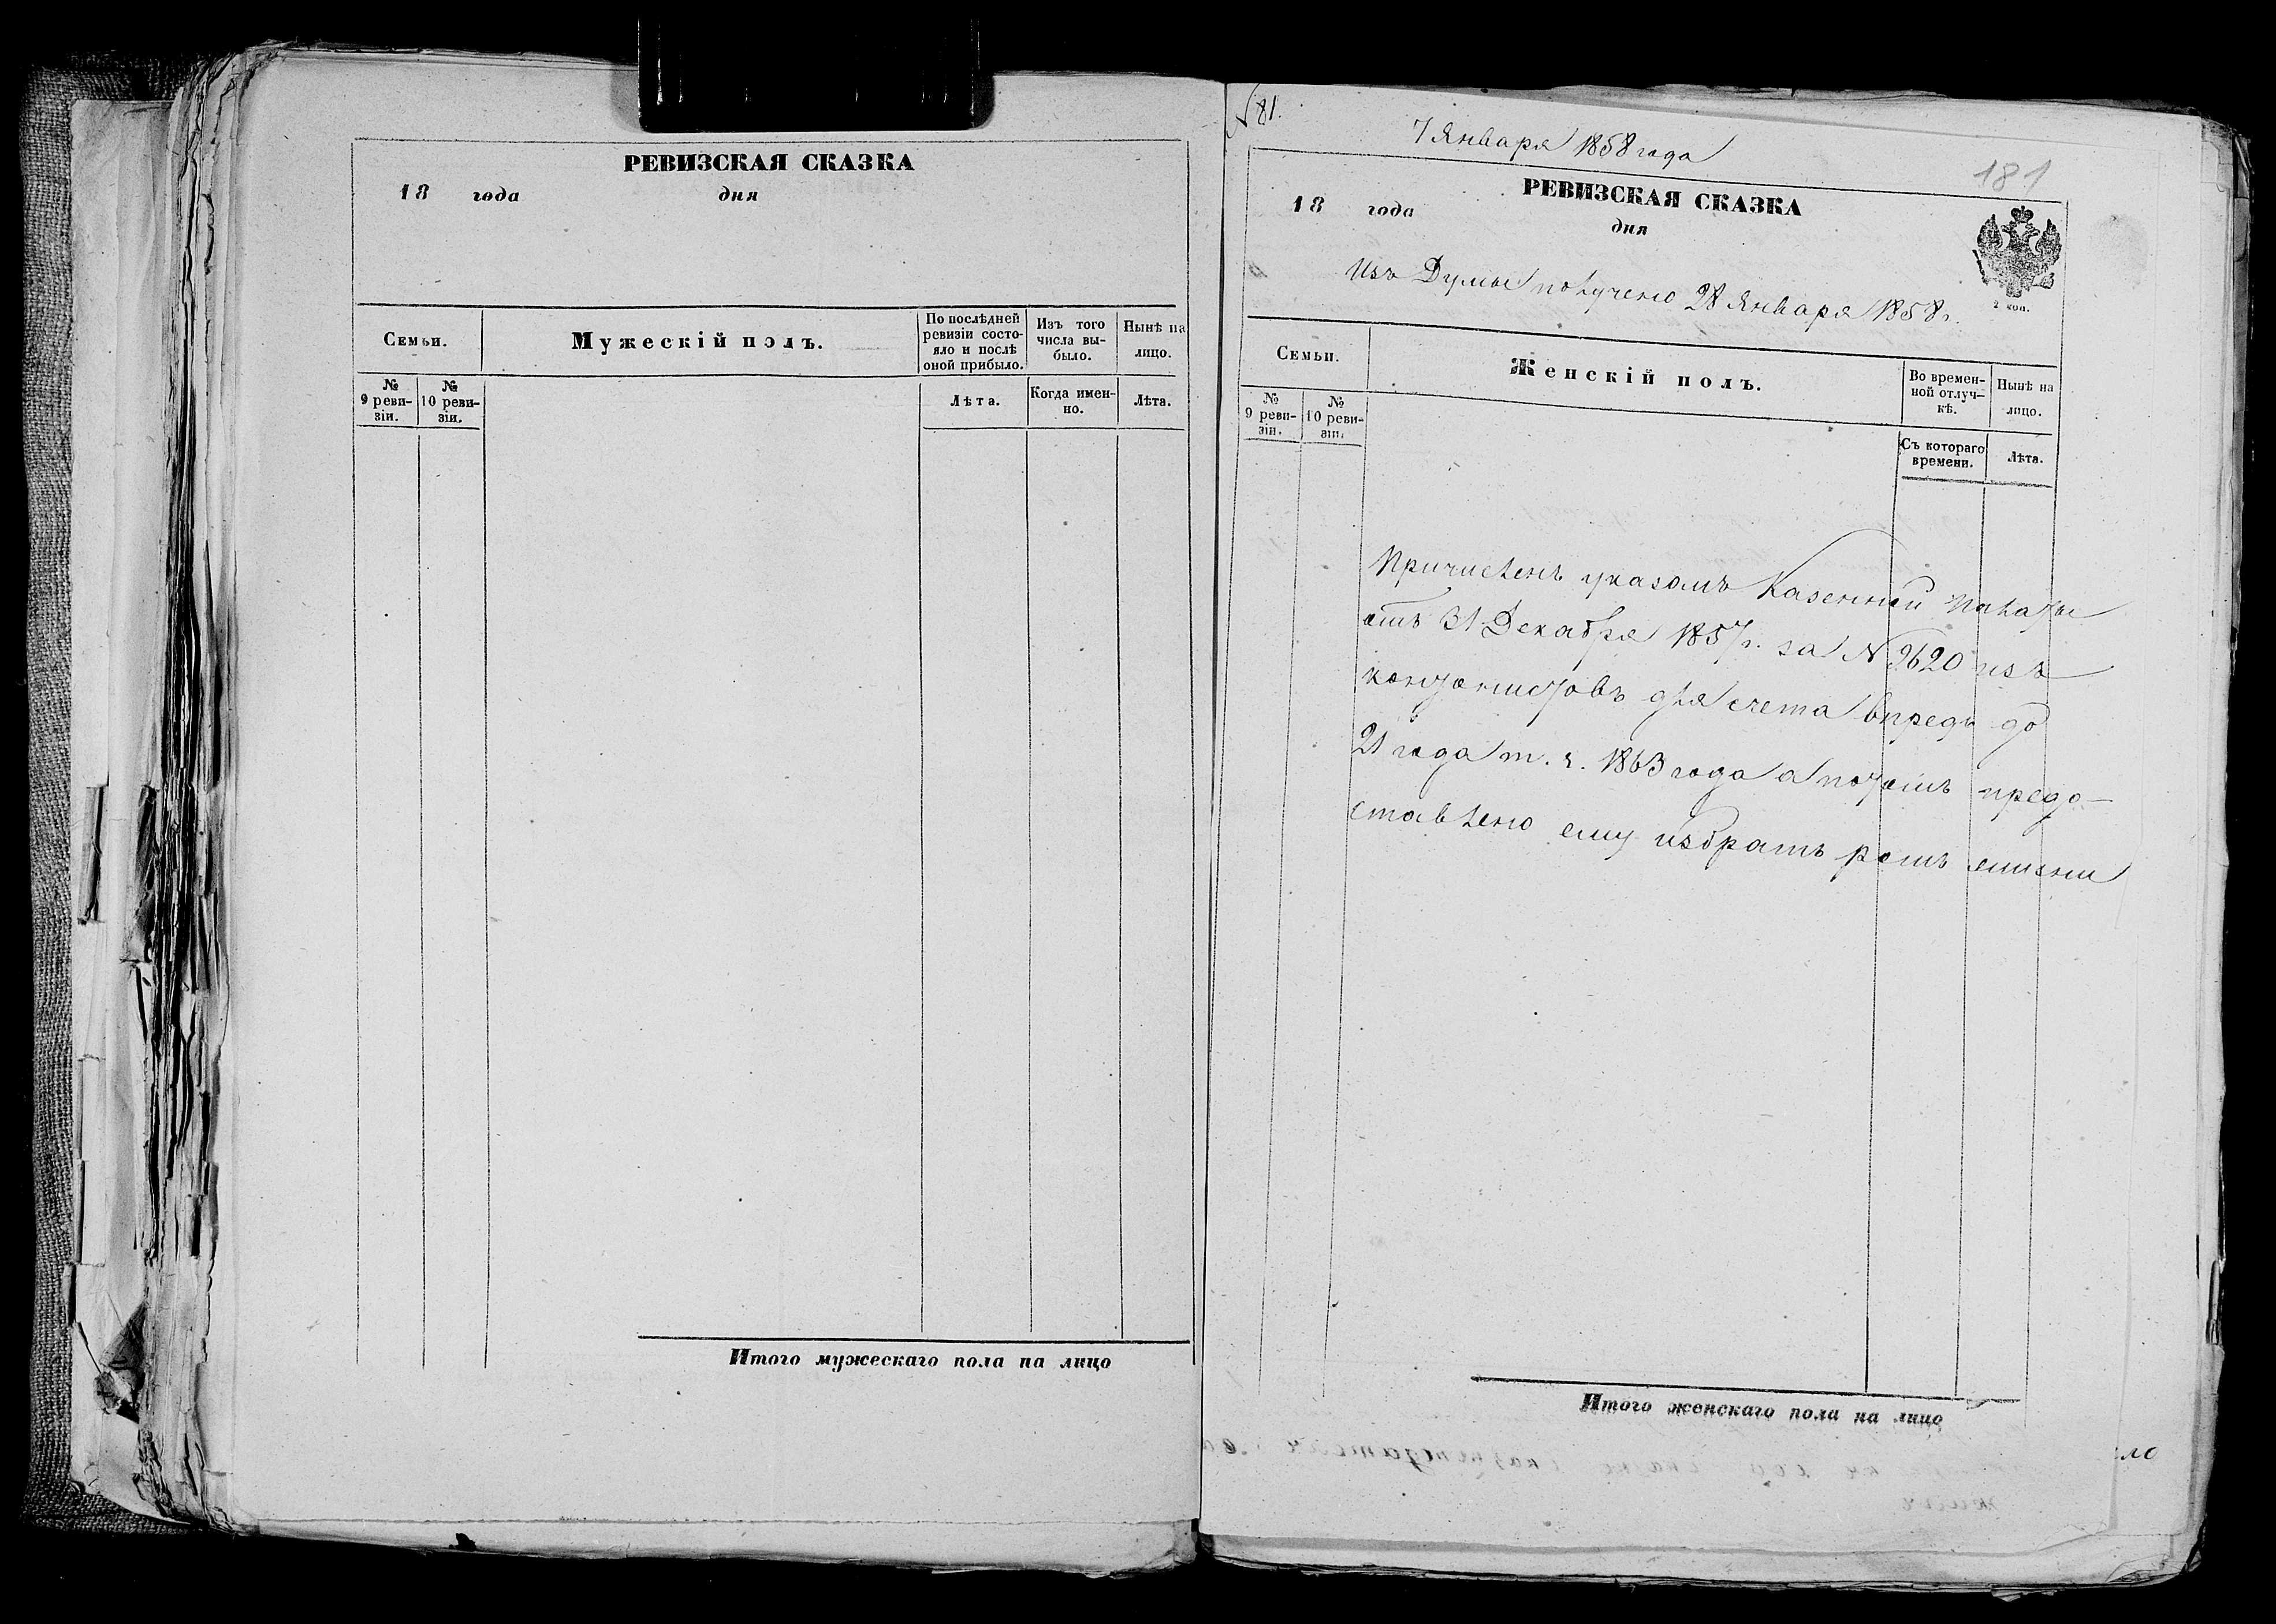 РЕВИЗСКАЯ СКАЗКА
18 года дня
Семьи.
Мужескій полъ.
По послѣдней
ревизіи состо-
яло и послѣ
оной прибыло.
Изъ того
числа вы-
было.
Нынѣ на
лицо.
№
9 реви-
зіи.
№
10 реви-
зіи.
Лѣта.
Когда имен-
но.
Лѣта.
Итого мужескаго пола на лицо
№ 81.
7 Января 1858 года
181
РЕВИЗСКАЯ СКАЗКА
18 года дня
2 коп.
Изъ Думы получено 28 Января 1858 г.
Семьи.
Женскій полъ.
Во времен-
ной отлуч-
кѣ.
Нынѣ на
лицо.
№
9 реви-
зіи.
№
10 реви-
зіи.
Съ котораго
времени.
Лѣта.
Причисленъ указомъ Казенной палаты
отъ 31 Декабря 1857 г. за № 9620 изъ
кантонистовъ для счета впредь до
21 года т. е. 1863 года а потомъ предо-
ставлено ему избрать родъ жизни
Итого женскаго пола на лицо
ло